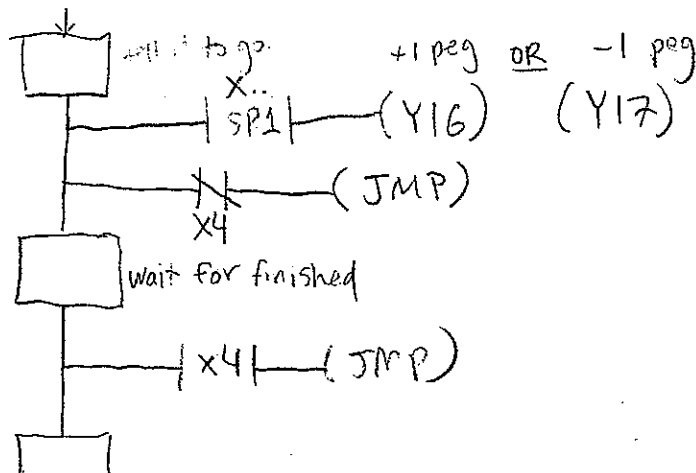 tell it to go. +1 peg OR -1 peg
X..
SP1 (Y16) (Y17)
(JMP)
X4
wait for finished
X4 (JMP)